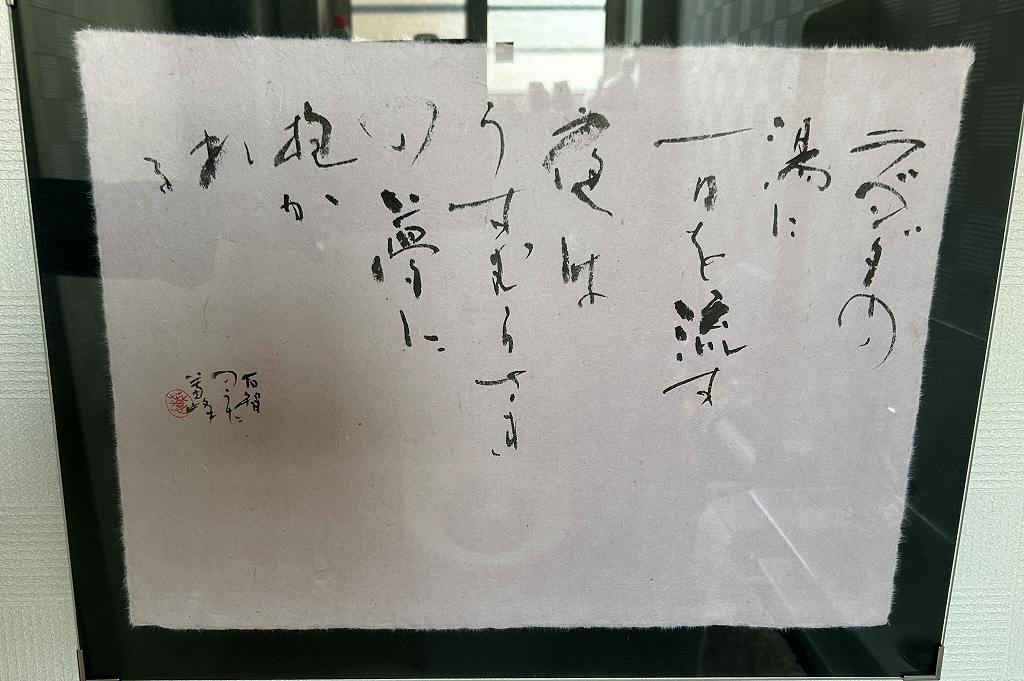 ラヂウムの
湯に
一日を流す
夜は
うすむらさき
の夢に
抱か
れ
る
のうた